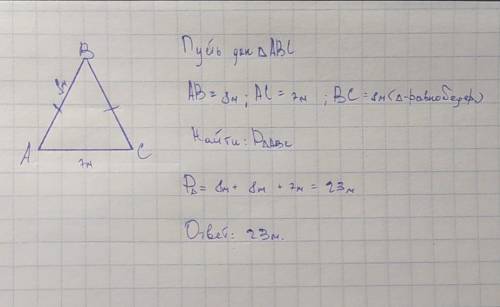 Пусть дан ΔABC
B
8м
AB = 8м ; AC = 7м ; BC = 8м (Δ-равнобедр.)
Найти: PΔABC
A
C
7м
PΔ = 8м + 8м + 7м = 23м
Ответ: 23м.